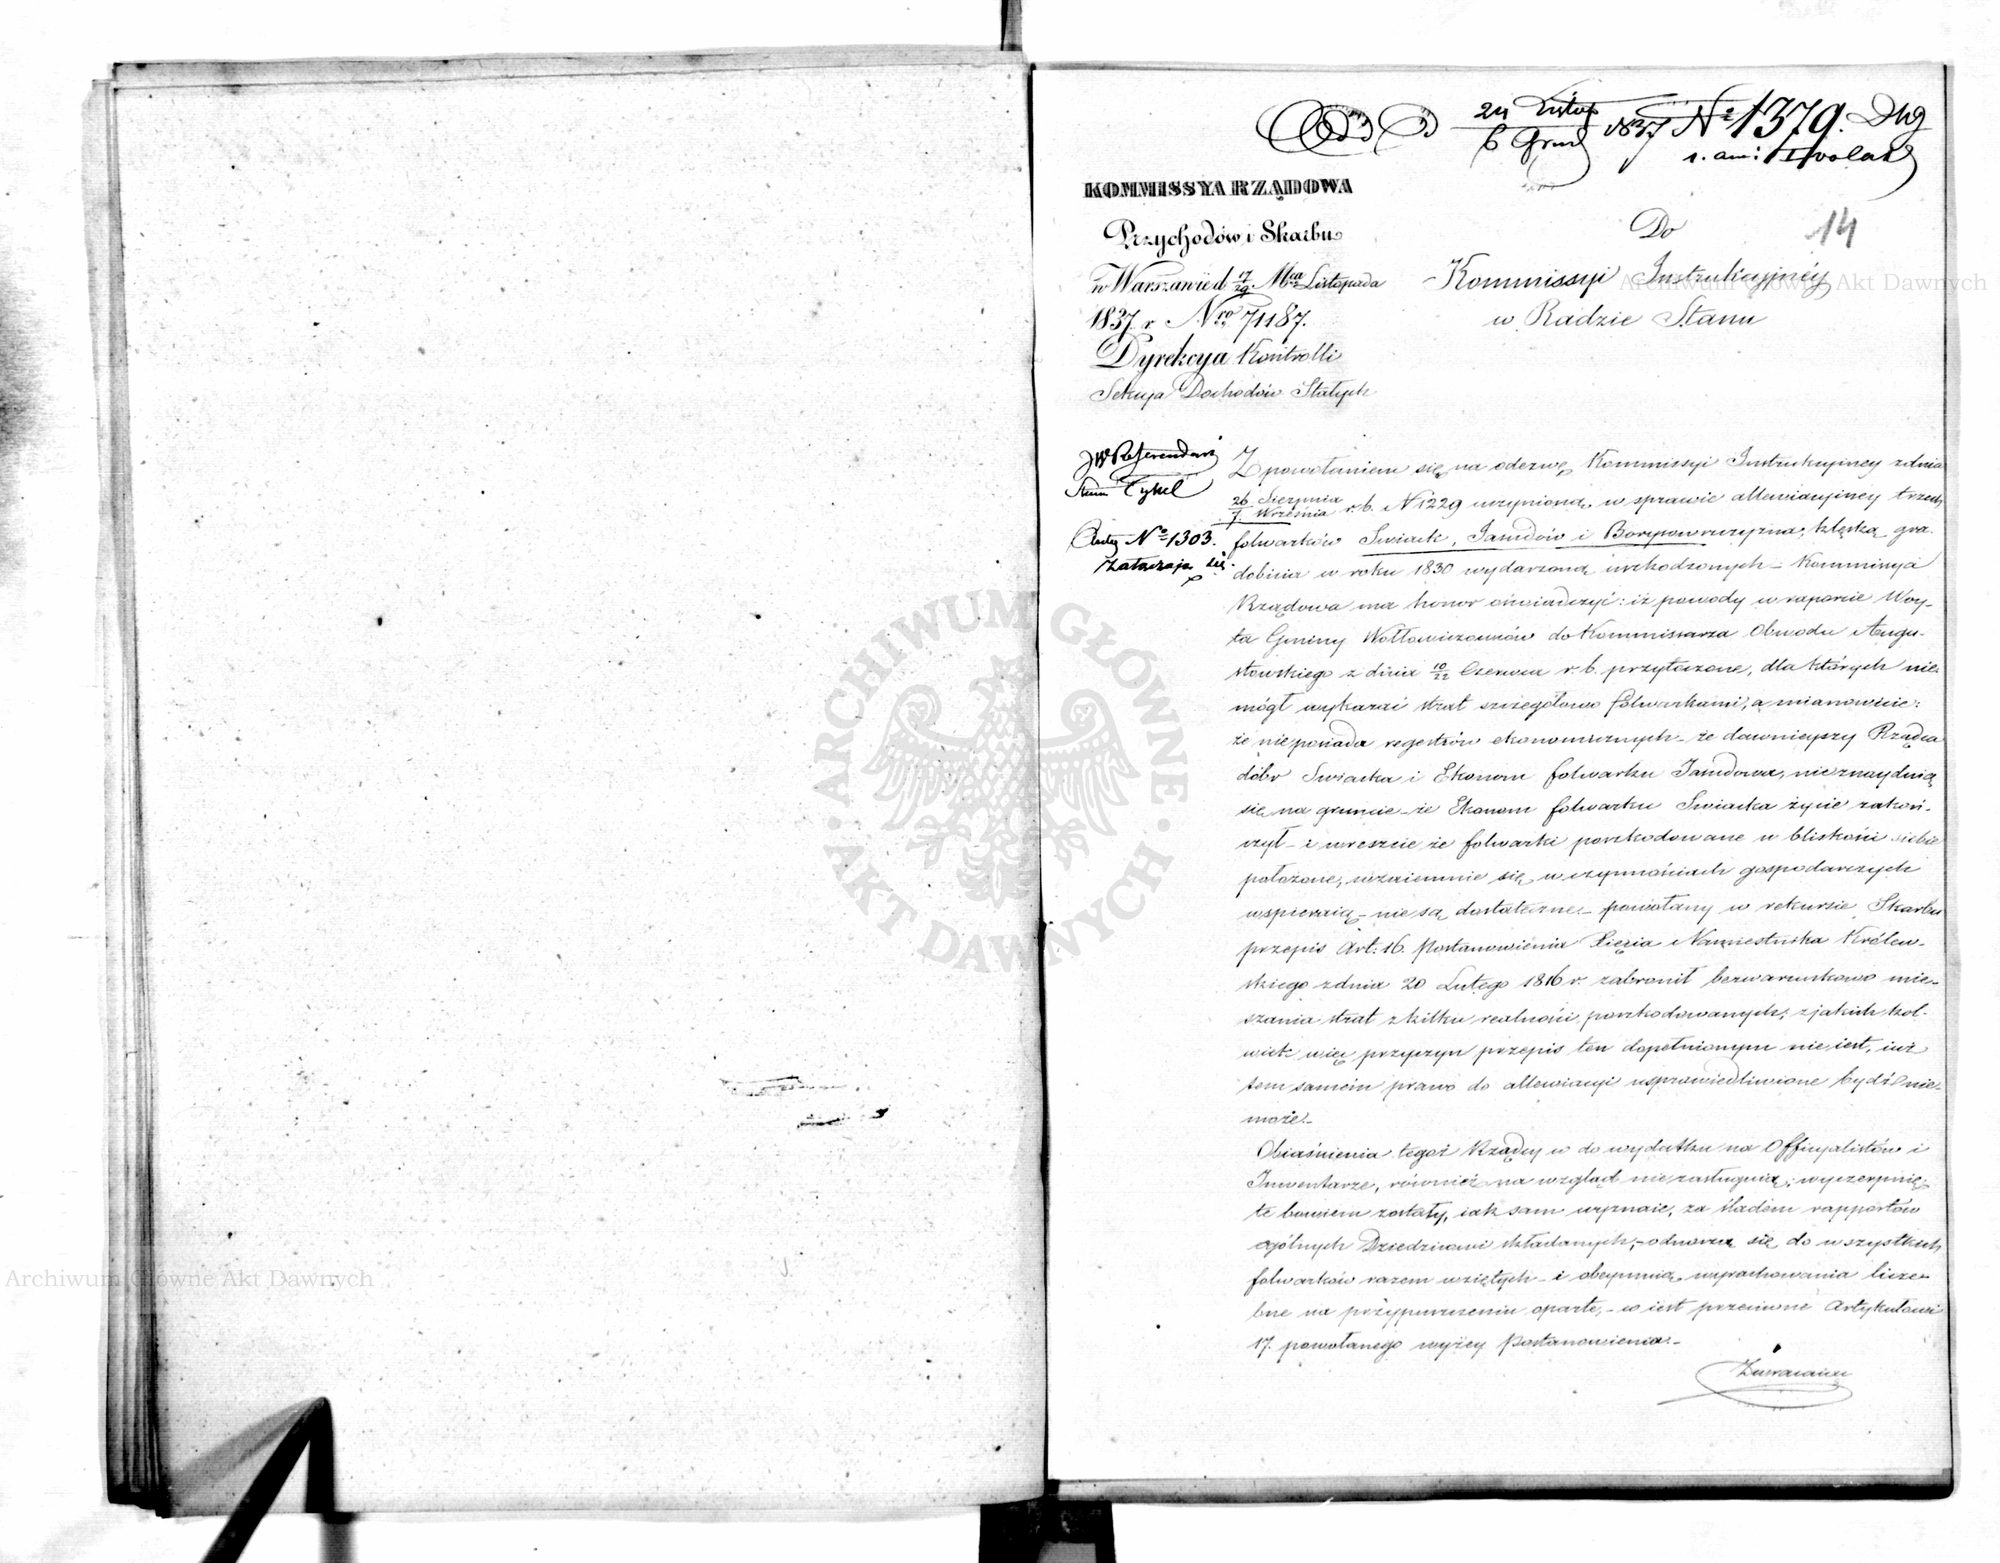 24 Listop
6 Grud 1837 Nº 1379.
1. an:
KOMMISSYA RZĄDOWA
Przychodów i Skarbu
w Warszawie d. 17/29 Mca Listopada
1837 r. Nro 71187.
Dyrekcya Kontrolli
Sekcya Dochodów Stałych
Do
14
Kommissyi Instrukcyjnéy
w Radzie Stanu
JW Referendarz
Stanu Tykel
Akta Nº 1303.
załączają się.
Z powołaniem się na odezwę Kommissyi Instrukcyiney z dnia
26 Sierpnia / 7 Września r. b. N 1229 uczynioną w sprawie allewiacyiney trzech
folwarków Swiack, Jamdów i Borysowszczyzna, klęską gra-
dobicia w roku 1830 wydarzoną uszkodzonych – Kommissya
Rządowa ma honor oświadczyć: iż powody w raporcie Woy-
ta Gminy Wołłowiczowców do Kommissarza Obwodu Augu-
stowskiego z dnia 10/22 Czerwca r. b. przytoczone, dla których nie-
mógł wykazać strat szczegółowo folwarkami, a mianowicie:
że nieposiada regestrów ekonomicznych – że dawnieyszy Rządca
dóbr Swiacka i Ekonom folwarku Jamdowa, nieznayduią
się na gruncie – że Ekonom folwarku Swiacka życie zakoń-
czył – i wreszcie że folwarki poszkodowane w bliskości siebie
położone, wzaiemnie się w czynnościach gospodarczych
wspieraią – nie są dostateczne – powołany w rekursie Skarbu
przepis Art: 16. Postanowienia Xięcia Namiestnika Królew-
skiego z dnia 20 Lutego 1816 r. zabronił bezwarunkowo mie-
szania strat z kilku realności poszkodowanych; z jakich kol-
wiek więc przyczyn przepis ten dopełnionym nie iest, iuż
tem samém prawo do allewiacyi usprawiedliwione bydź nie-
może. –
Obiaśnienia tegoż Rządcy co do wydatku na Officyalistów i
Inwentarze, również na wzgląd nie zasługuią; wyczerpnię-
te bowiem zostały, iak sam wyznaie, za śladem rapportów
ogólnych Dziedzicowi składanych, – odnoszą się do wszystkich
folwarków razem wziętych – i obeymuią wyrachowania licze-
bne na przypuszczeniu oparte, – co iest przeciwne Artykułowi
17. powołanego wyżey Postanowienia. –
Archiwum Główne Akt Dawnych
Archiwum Główne Akt Dawnych
ARCHIWUM GŁÓWNE
AKT DAWNYCH